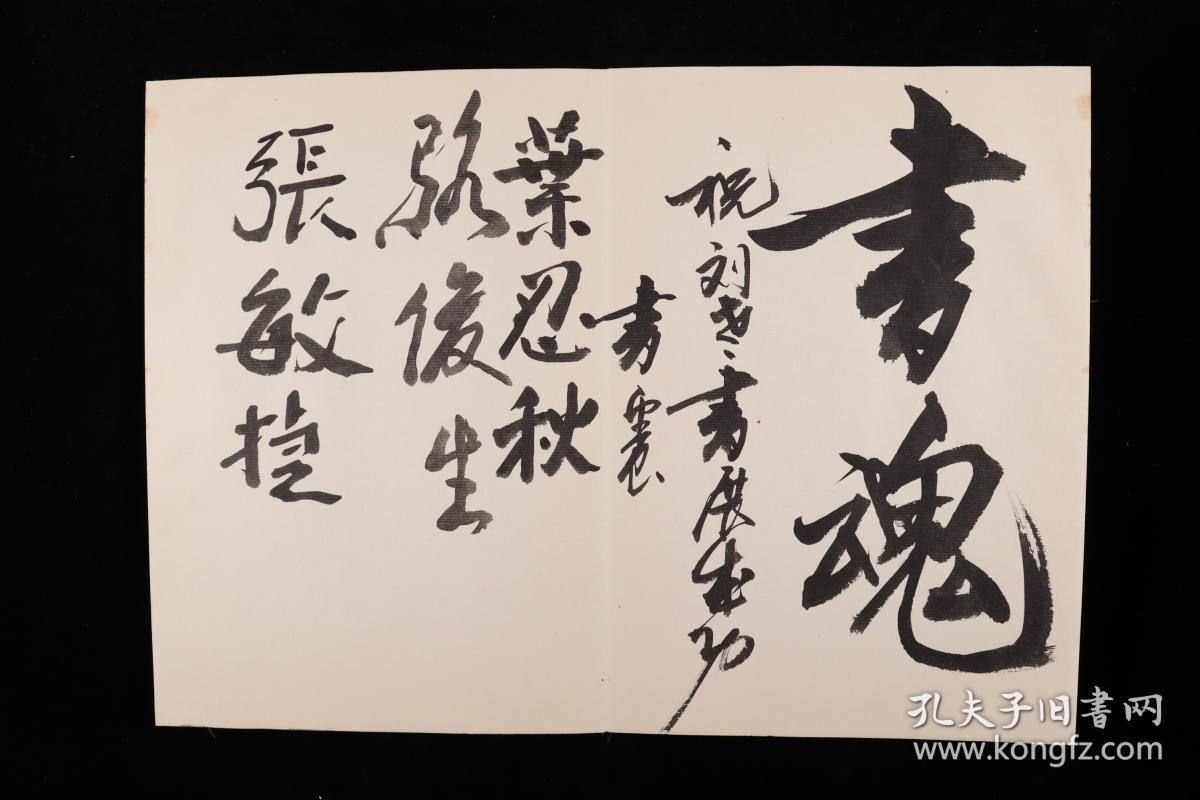 書魂
祝刘老書展成功
書
葉忍秋
駱俊生
張敏捷
孔夫子旧書网
www.kongfz.com